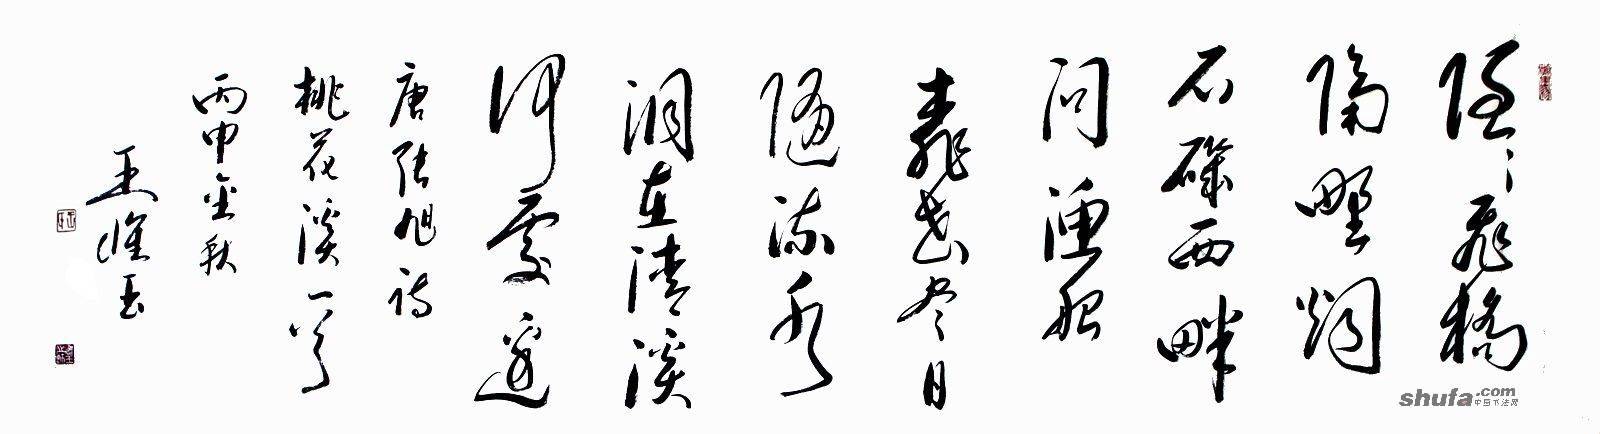 隐〻飞桥
隔野烟
石矶西畔
问渔船
桃花尽日
随流水
洞在清溪
何处边
唐张旭诗
桃花溪一首
丙申金秋
王惟玉
shufa.com
中国书法网